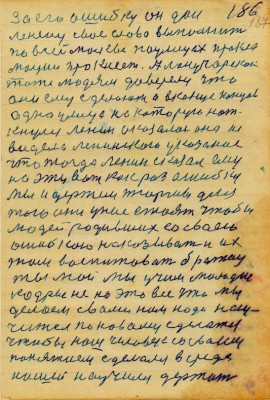 186
За его ошибку он дал
Ленину свое слово выполнит
по всей москве по улицах прокла
мации про Кисет. А Луначарском
тоже людям доверели что
они ему сделают а вконце концов
одна улица на которую нат-
кнулся Ленин оказалас она не
видела ленинского указание
что тогда Ленин сказал ему
на эти вот как раз ошибки
мы и держем тюрмы для
того они уже стоят чтобы
людей родивших со своею
ошибкою наказыват и их
там воспитоват
ты мой мы учим молодые
кадры не на это все что мы
делаем с вами нам надо нау-
чится по новому сделат
чтобы наш человек со своим
понятием сделал в среде
нашей научился держат